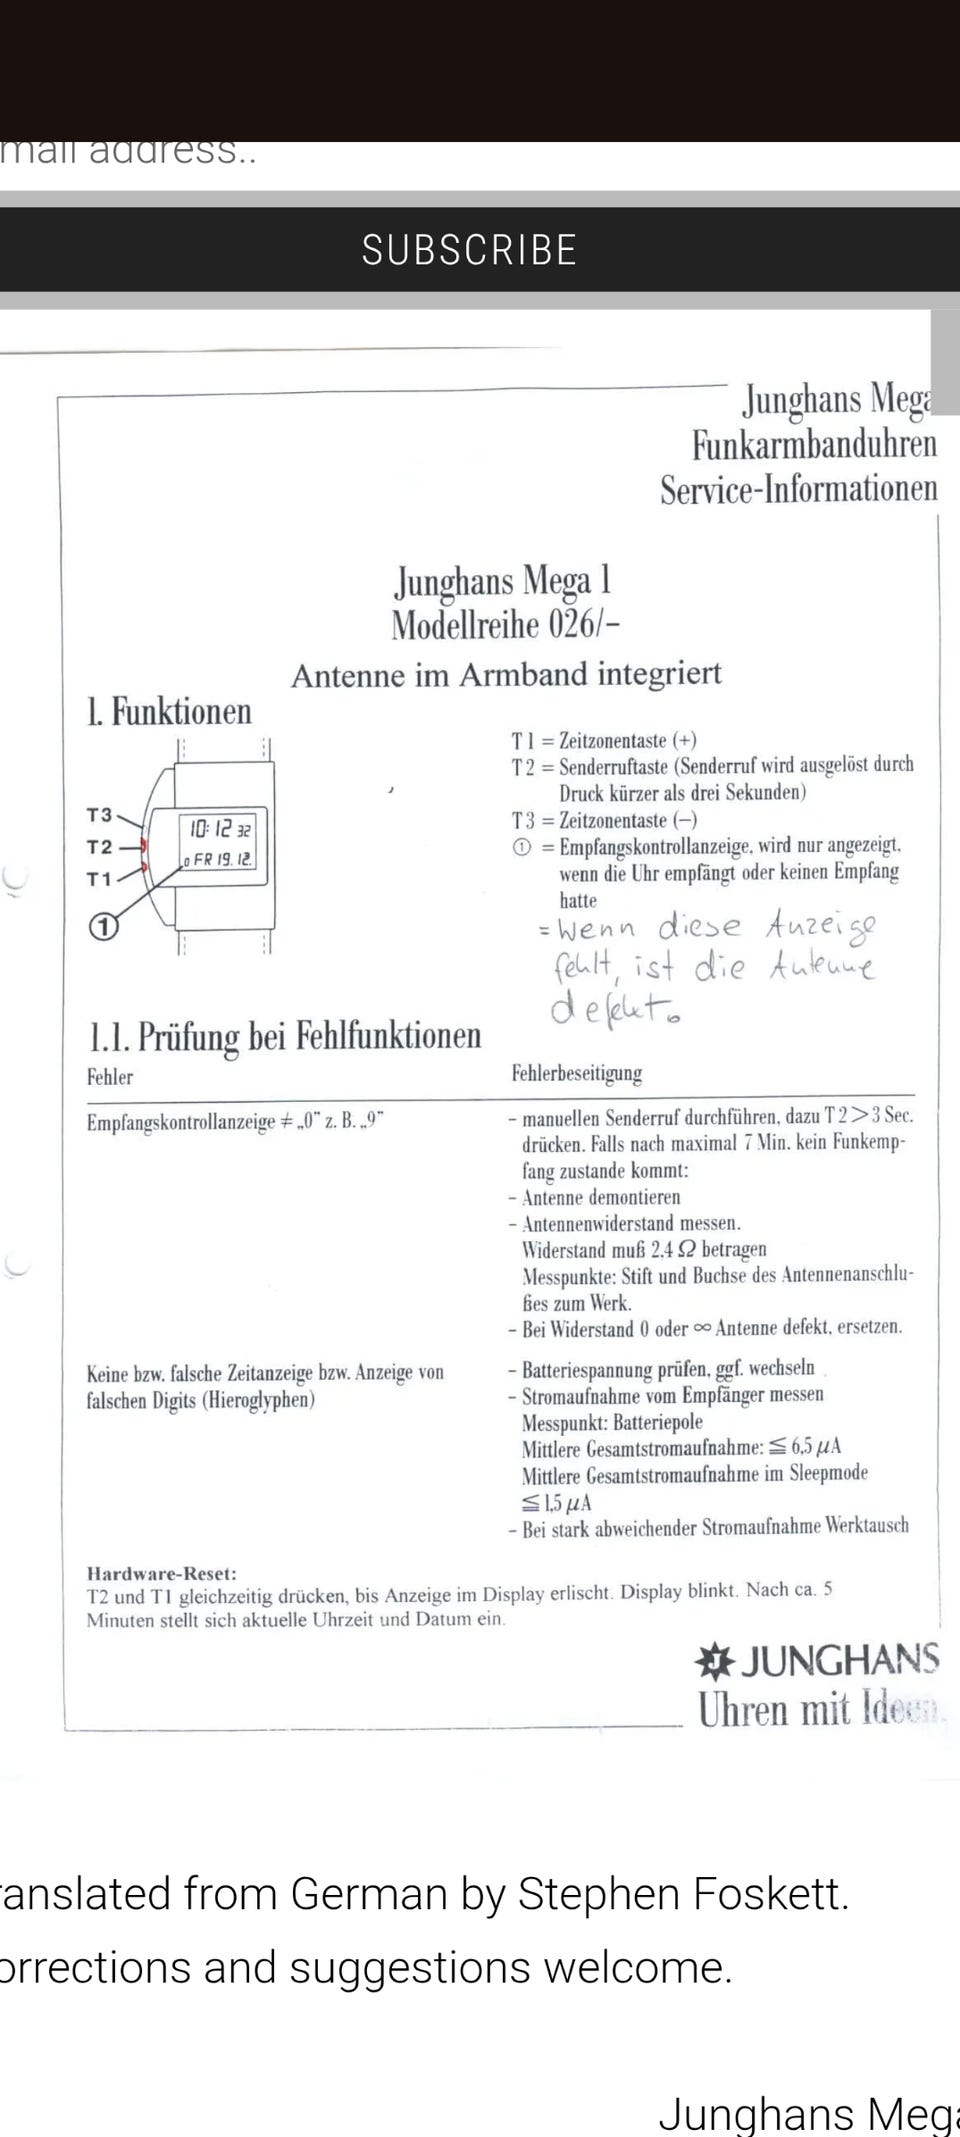 mail address..
SUBSCRIBE
Junghans Mega
Funkarmbanduhren
Service-Informationen
Junghans Mega 1
Modellreihe 026/–
Antenne im Armband integriert
1. Funktionen
T3
T2
T1
①
10:12 32
0 FR 19. 12.
T 1 = Zeitzonentaste (+)
T 2 = Senderruftaste (Senderruf wird ausgelöst durch
Druck kürzer als drei Sekunden)
T 3 = Zeitzonentaste (–)
① = Empfangskontrollanzeige, wird nur angezeigt,
wenn die Uhr empfängt oder keinen Empfang
hatte
= Wenn diese Anzeige
fehlt, ist die Antenne
defekt.
1.1. Prüfung bei Fehlfunktionen
Fehler
Fehlerbeseitigung
Empfangskontrollanzeige ≠ „0" z. B. „9"
– manuellen Senderruf durchführen, dazu T 2 > 3 Sec.
drücken. Falls nach maximal 7 Min. kein Funkemp-
fang zustande kommt:
– Antenne demontieren
– Antennenwiderstand messen.
Widerstand muß 2,4 Ω betragen
Messpunkte: Stift und Buchse des Antennenanschlu-
ßes zum Werk.
– Bei Widerstand 0 oder ∞ Antenne defekt, ersetzen.
Keine bzw. falsche Zeitanzeige bzw. Anzeige von
falschen Digits (Hieroglyphen)
– Batteriespannung prüfen, ggf. wechseln
– Stromaufnahme vom Empfänger messen
Messpunkt: Batteriepole
Mittlere Gesamtstromaufnahme: ≦ 6,5 µA
Mittlere Gesamtstromaufnahme im Sleepmode
≦ 1,5 µA
– Bei stark abweichender Stromaufnahme Werktausch
Hardware-Reset:
T2 und T1 gleichzeitig drücken, bis Anzeige im Display erlischt. Display blinkt. Nach ca. 5
Minuten stellt sich aktuelle Uhrzeit und Datum ein.
JUNGHANS
Uhren mit Ideen.
ranslated from German by Stephen Foskett.
orrections and suggestions welcome.
Junghans Mega